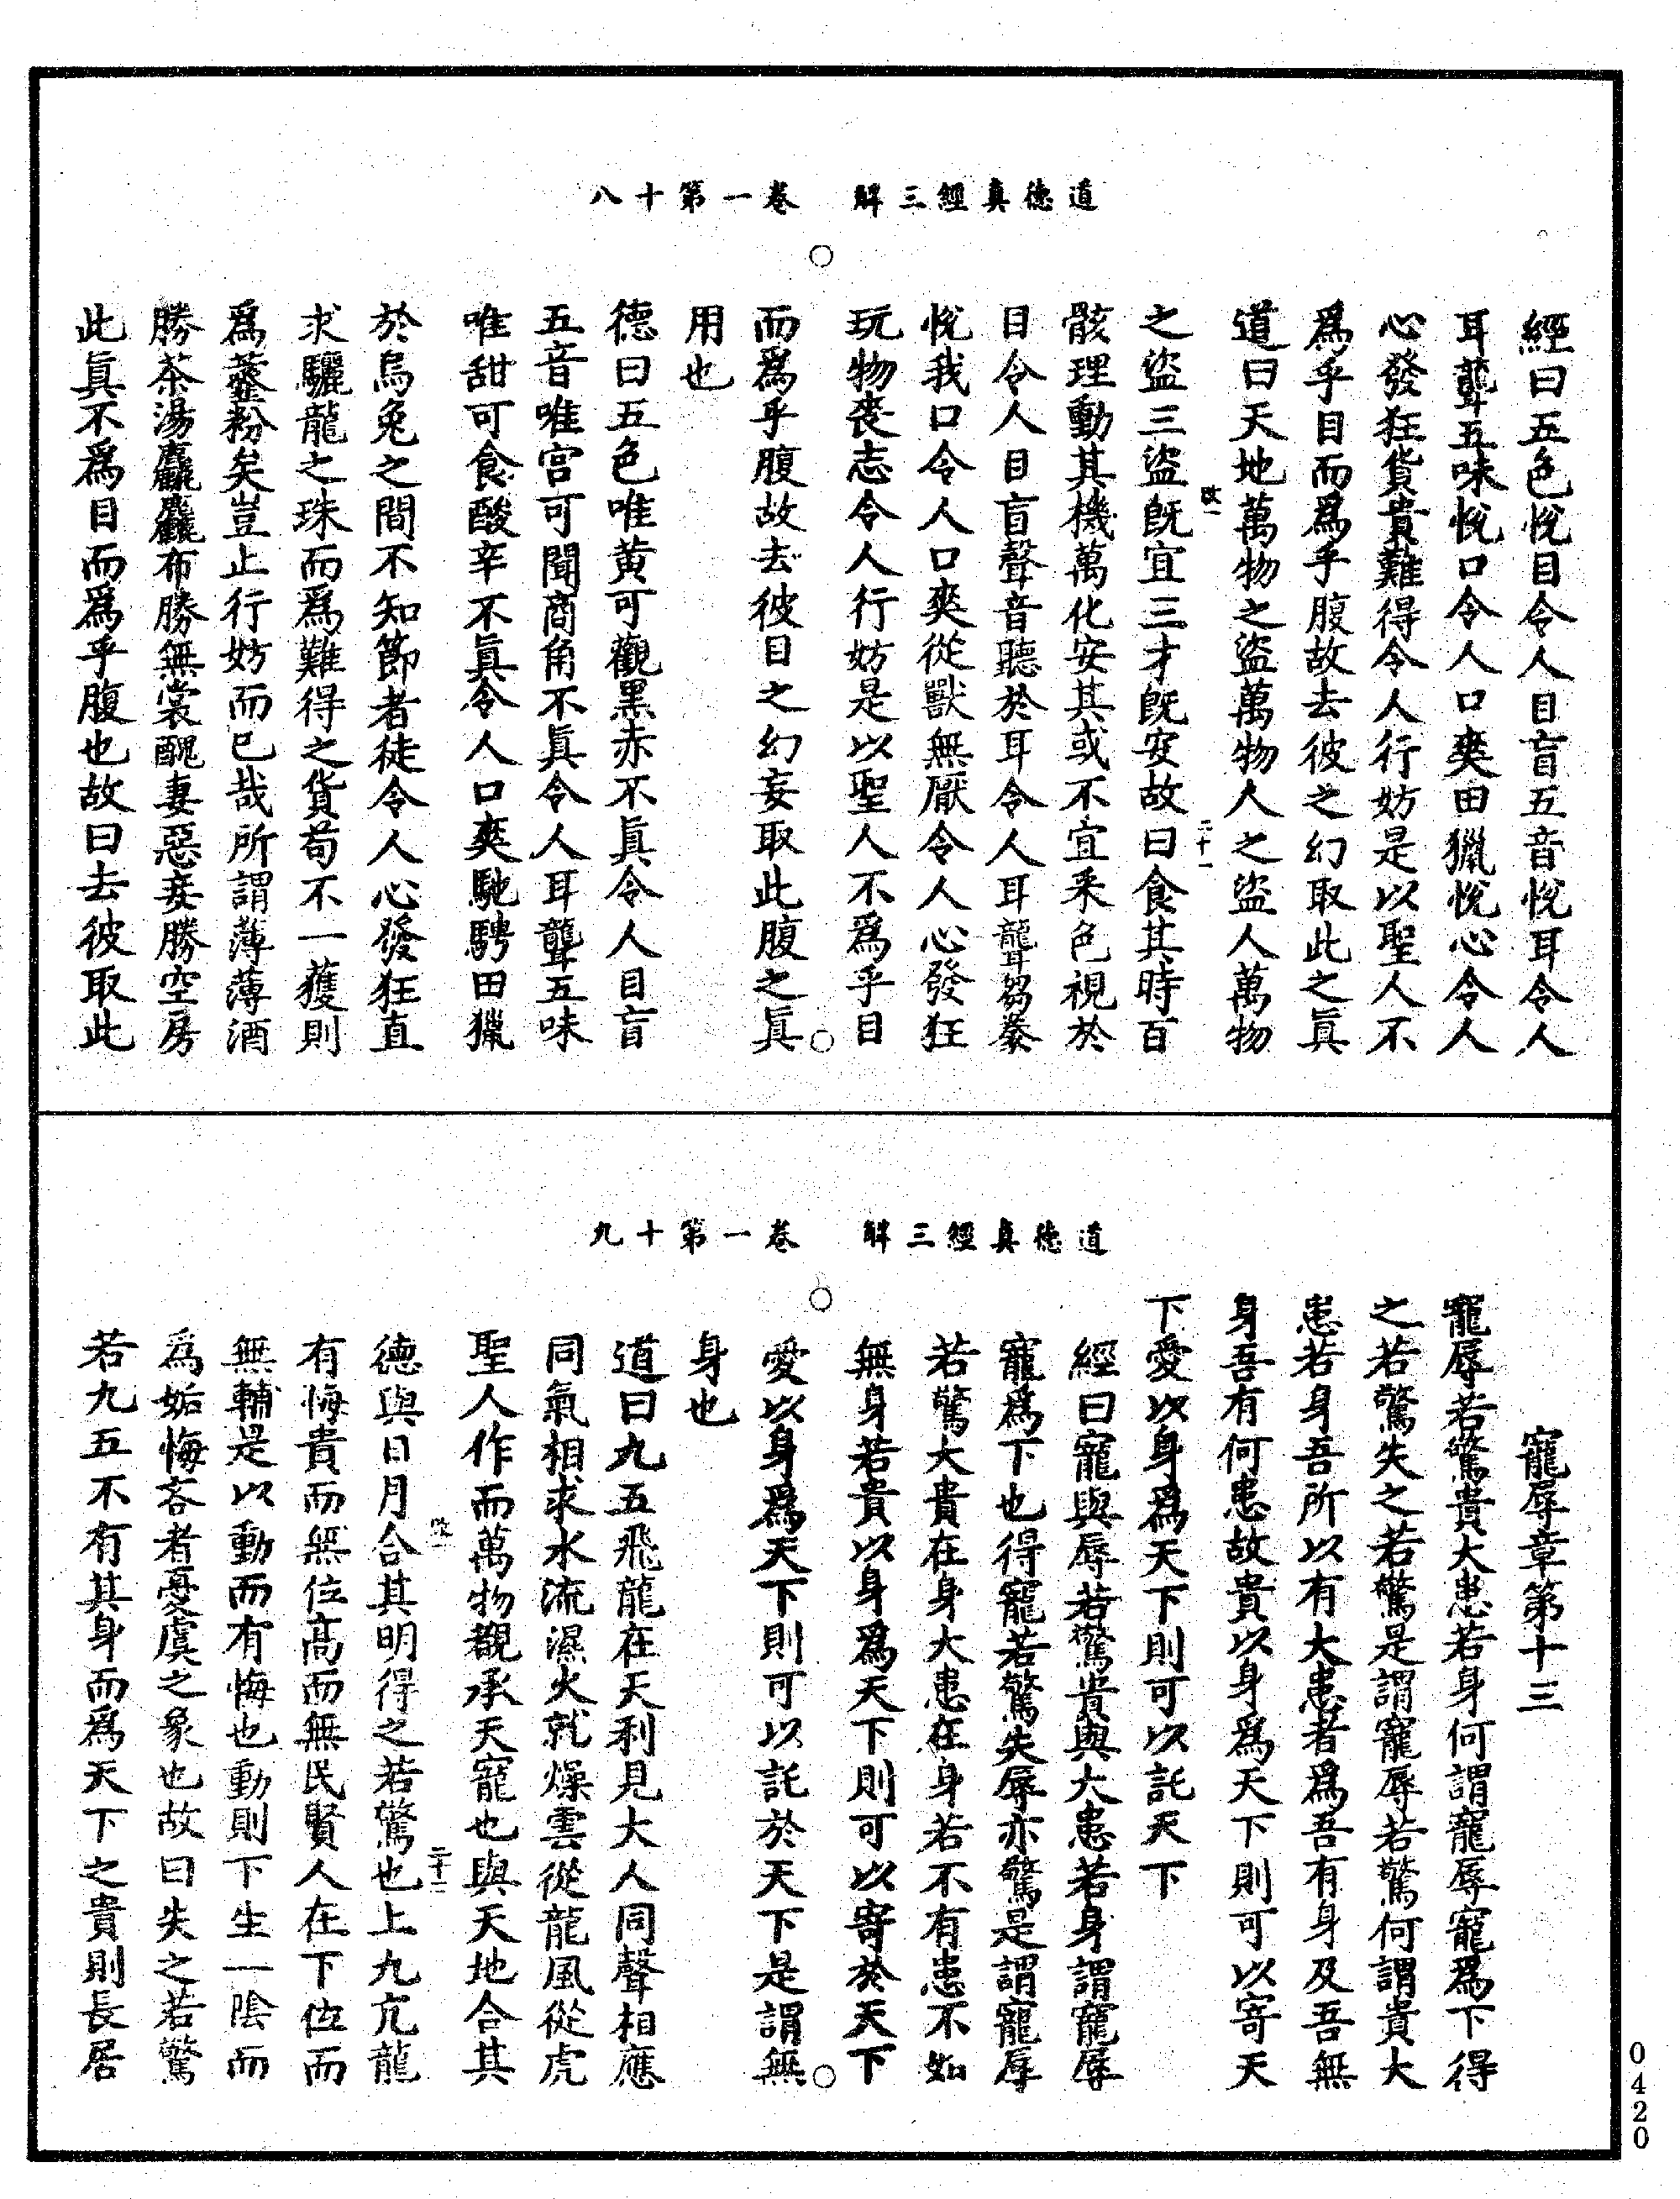 道德真經三解　卷一第十八
經曰五色悅目令人目盲五音悅耳令人
耳聾五味悅口令人口爽田獵悅心令人
心發狂貨貴難得令人行妨是以聖人不
爲乎目而爲乎腹故去彼之幻取此之眞
道曰天地萬物之盜萬物人之盜人萬物
改一　二十一
之盜三盜旣宜三才旣安故曰食其時百
骸理動其機萬化安其或不宜釆色視於
目令人目盲聲音聽於耳令人耳聾芻豢
悅我口令人口爽從獸無厭令人心發狂
玩物喪志令人行妨是以聖人不爲乎目
而爲乎腹故去彼目之幻妄取此腹之眞
用也
德曰五色唯黃可觀黑赤不眞令人目盲
五音唯宮可聞商角不眞令人耳聾五味
唯甜可食酸辛不眞令人口爽馳騁田獵
於烏兔之間不知節者徒令人心發狂直
求驪龍之珠而爲難得之貨苟不一獲則
爲虀粉矣豈止行妨而已哉所謂薄薄酒
勝茶湯麤麤布勝無裳醜妻惡妾勝空房
此眞不爲目而爲乎腹也故曰去彼取此
道德真經三解　卷一第十九
寵辱章第十三
寵辱若驚貴大患若身何謂寵辱寵爲下得
之若驚失之若驚是謂寵辱若驚何謂貴大
患若身吾所以有大患者爲吾有身及吾無
身吾有何患故貴以身爲天下則可以寄天
下愛以身爲天下則可以託天下
經曰寵與辱若驚貴與大患若身謂寵辱
寵爲下也得寵若驚失辱亦驚是謂寵辱
若驚大貴在身大患在身若不有患不如
無身若貴以身爲天下則可以寄於天下
愛以身爲天下則可以託於天下是謂無
身也
道曰九五飛龍在天利見大人同聲相應
同氣相求水流濕火就燥雲從龍風從虎
聖人作而萬物覩承天寵也與天地合其
改一　二十二
德與日月合其明得之若驚也上九亢龍
有悔貴而無位高而無民賢人在下位而
無輔是以動而有悔也動則下生一陰而
爲姤悔吝者憂虞之象也故曰失之若驚
若九五不有其身而爲天下之貴則長居
0420